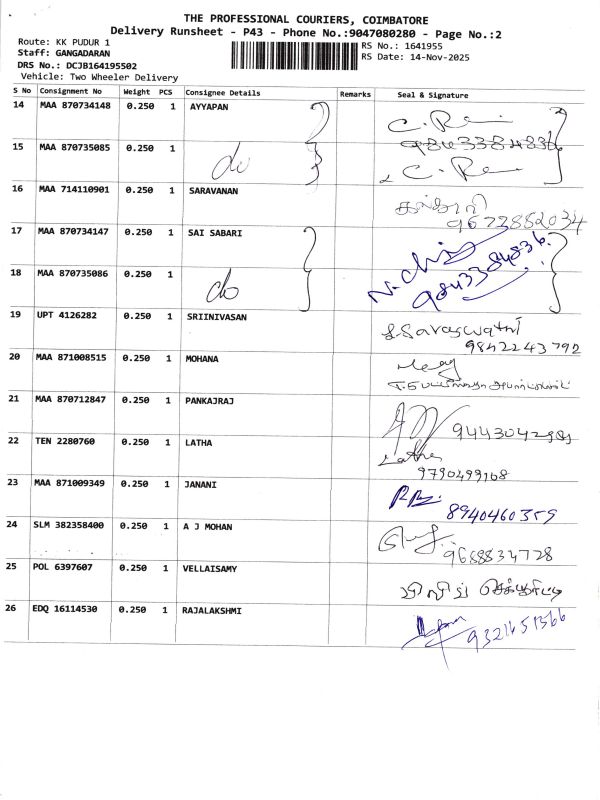 THE PROFESSIONAL COURIERS, COIMBATORE
Delivery Runsheet - P43 - Phone No.:9047080280 - Page No.:2
Route: KK PUDUR 1
RS No.: 1641955
Staff: GANGADARAN
RS Date: 14-Nov-2025
DRS No.: DCJB164195502
Vehicle: Two Wheeler Delivery
S No Consignment No Weight PCS Consignee Details Remarks Seal & Signature
14 MAA 870734148 0.250 1 AYYAPAN
9843384836
15 MAA 870735085 0.250 1 do
16 MAA 714110901 0.250 1 SARAVANAN
17 MAA 870734147 0.250 1 SAI SABARI
9843384836
18 MAA 870735086 0.250 1 do
19 UPT 4126282 0.250 1 SRIINIVASAN S.Saraswathi
9842243792
20 MAA 871008515 0.250 1 MOHANA
21 MAA 870712847 0.250 1 PANKAJRAJ
22 TEN 2280760 0.250 1 LATHA Latha
9790499168
23 MAA 871009349 0.250 1 JANANI
8940460359
24 SLM 382358400 0.250 1 A J MOHAN
9688834728
25 POL 6397607 0.250 1 VELLAISAMY
26 EDQ 16114530 0.250 1 RAJALAKSHMI